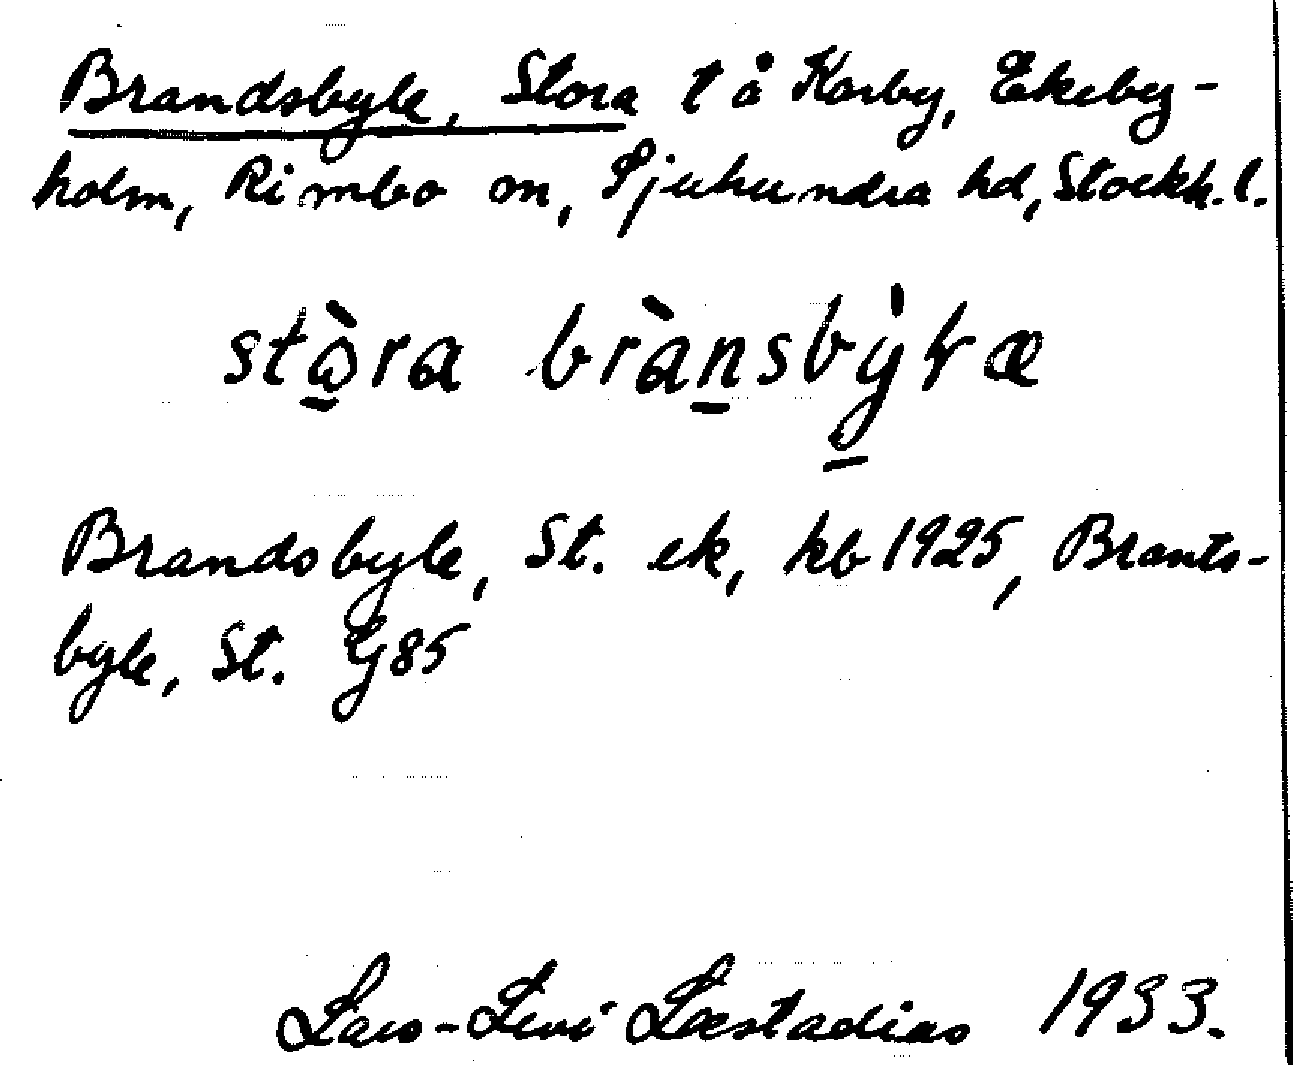 Brandsbyle, Stora t å Karby, Ekeby-
holm, Rimbo sn, Sjuhundra hd, Stockh. l.
stòra brànsbỳłæ
Brandsbyle, St. ek, hb 1925, Brants-
byle, St. GJ85
Lars-Levi Læstadius 1933.